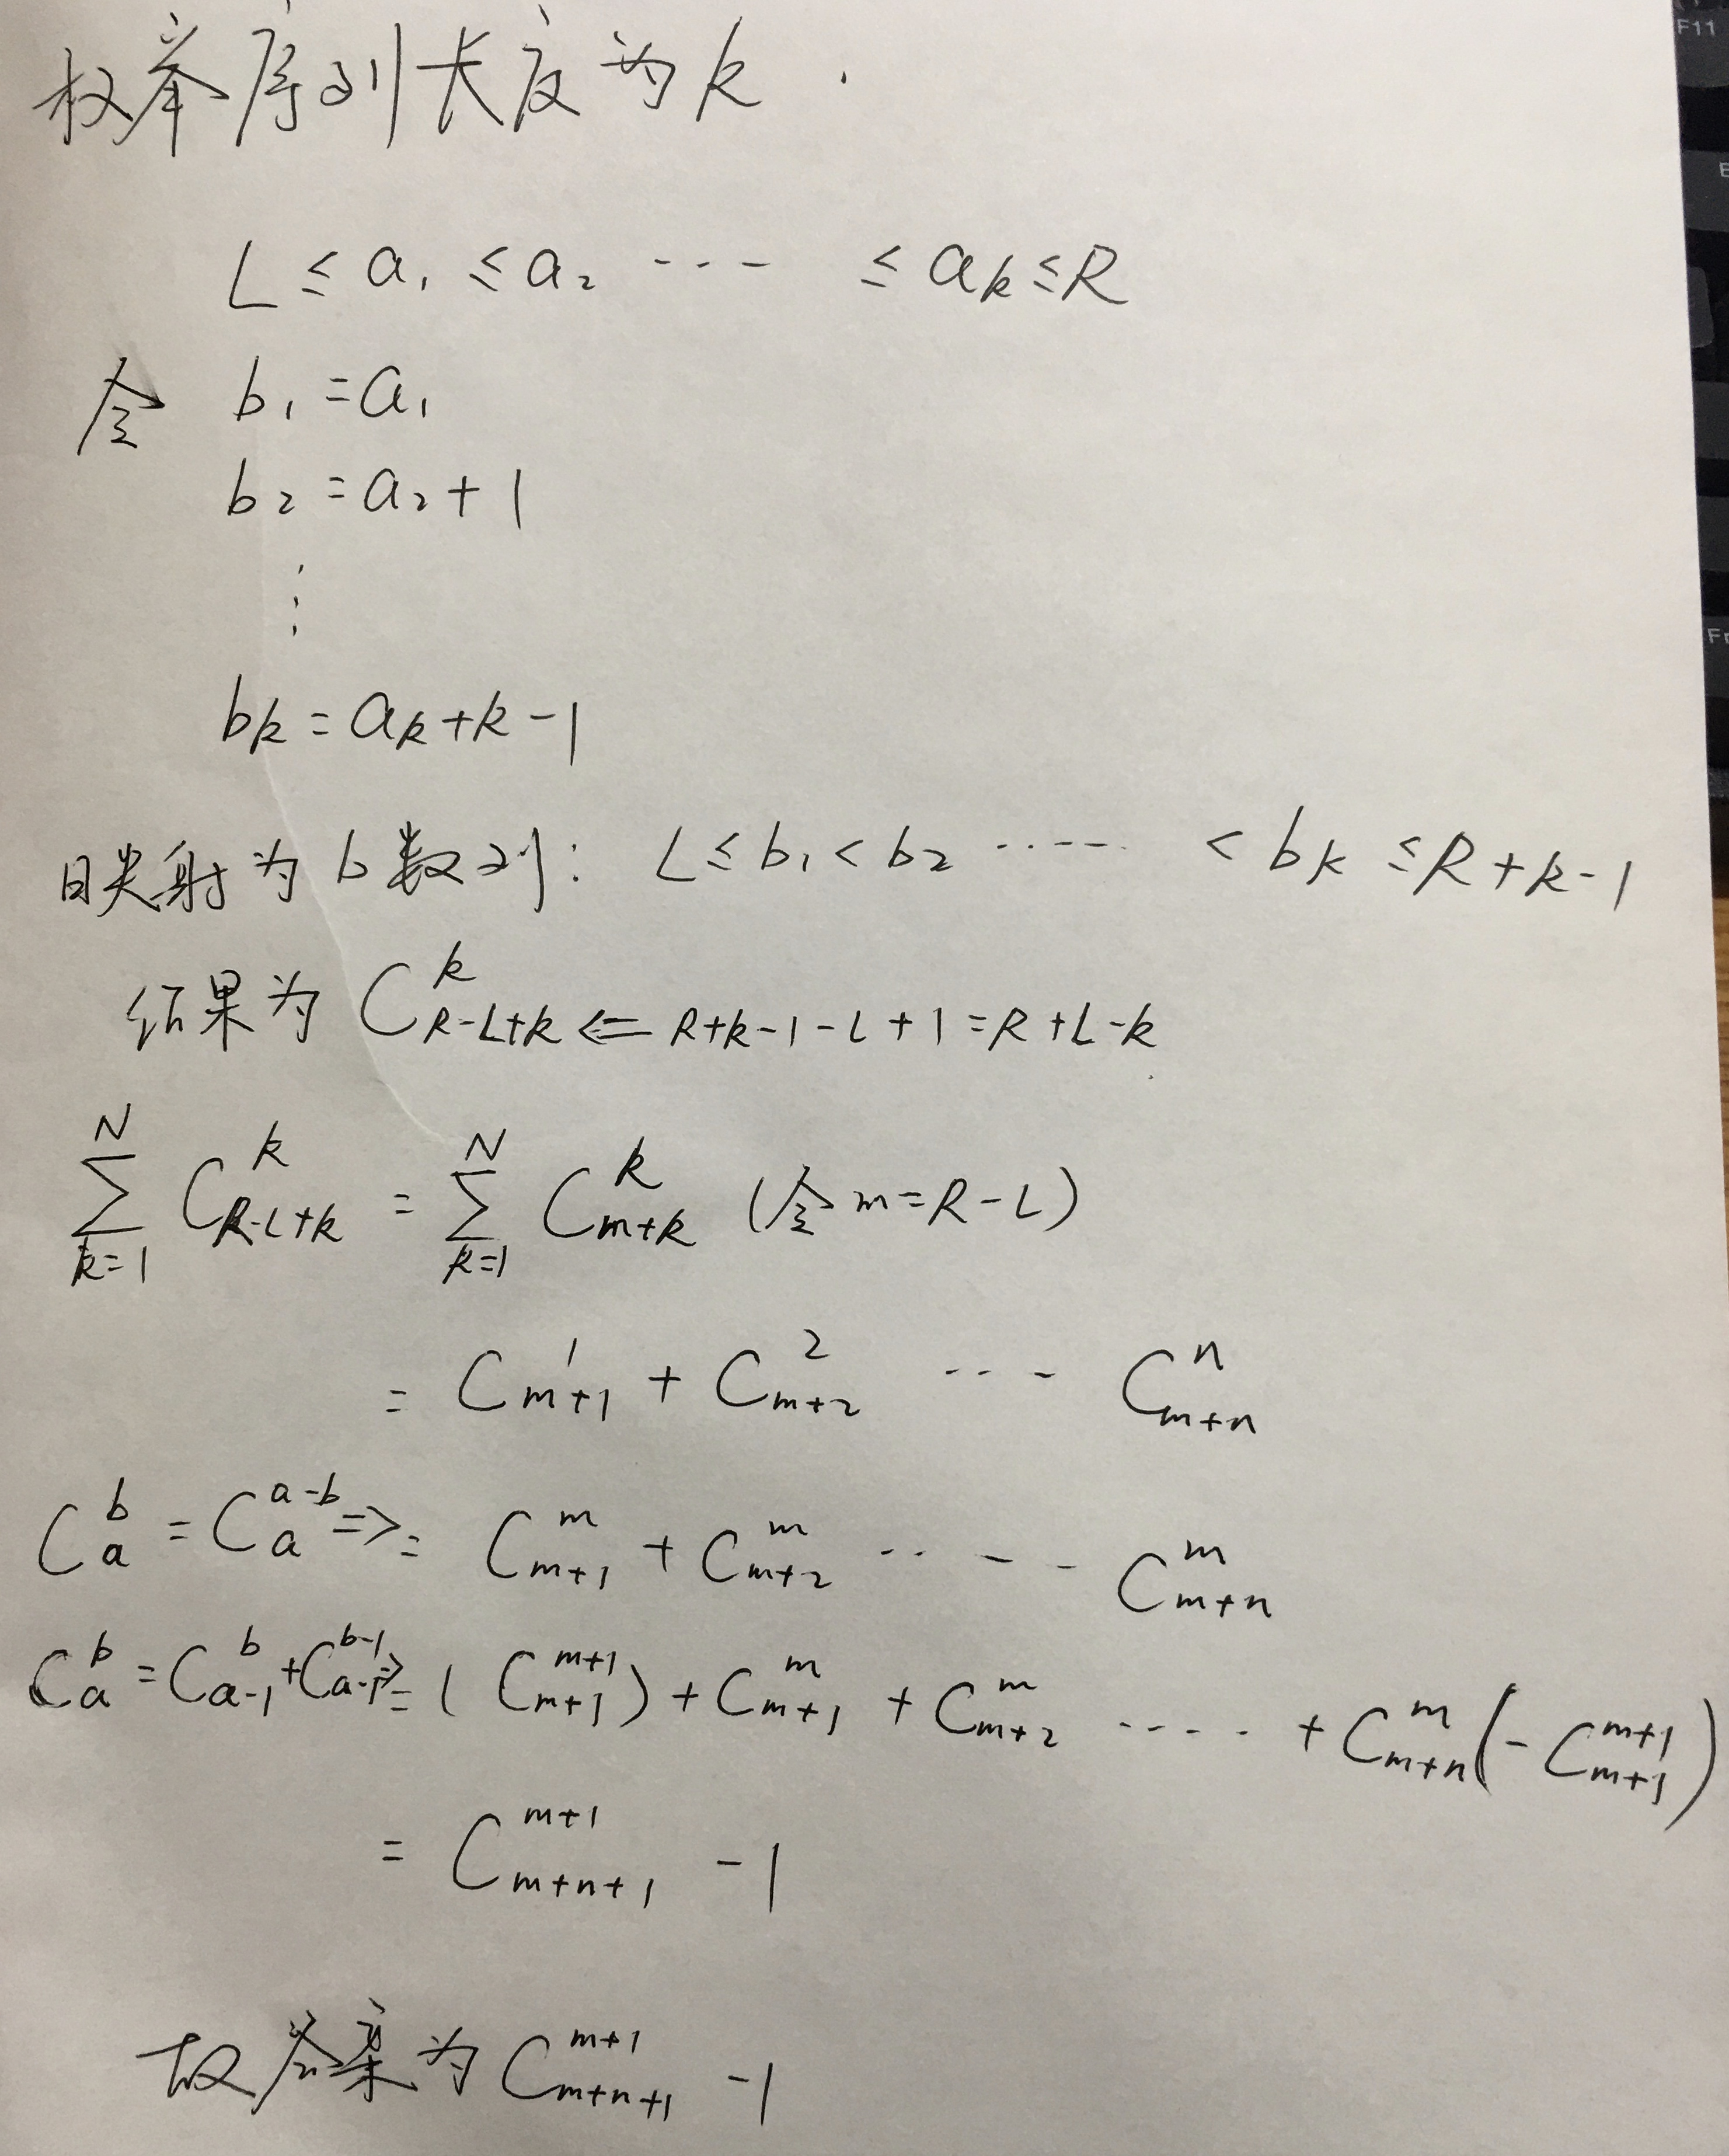 枚举序列长度为k.
L ≤ a₁ ≤ a₂ --- ≤ aₖ ≤ R
令 b₁ = a₁
b₂ = a₂ + 1
⋮
bₖ = aₖ + k - 1
映射为b数列: L ≤ b₁ < b₂ ····-- < bₖ ≤ R + k - 1
结果为 C_{R-L+k}^{k} ⇐ R+k-1-L+1=R+L-k
∑_{k=1}^{N} C_{R-L+k}^{k} = ∑_{k=1}^{N} C_{m+k}^{k} (令 m=R-L)
= C_{m+1}^{1} + C_{m+2}^{2} ··-- C_{m+n}^{n}
C_{a}^{b} = C_{a}^{a-b} => = C_{m+1}^{m} + C_{m+2}^{m} ··--- C_{m+n}^{m}
C_{a}^{b} = C_{a-1}^{b} + C_{a-1}^{b-1} => = (C_{m+1}^{m+1}) + C_{m+1}^{m} + C_{m+2}^{m} ----· + C_{m+n}^{m} (- C_{m+1}^{m+1})
= C_{m+n+1}^{m+1} - 1
故答案为 C_{m+n+1}^{m+1} - 1
F11
E